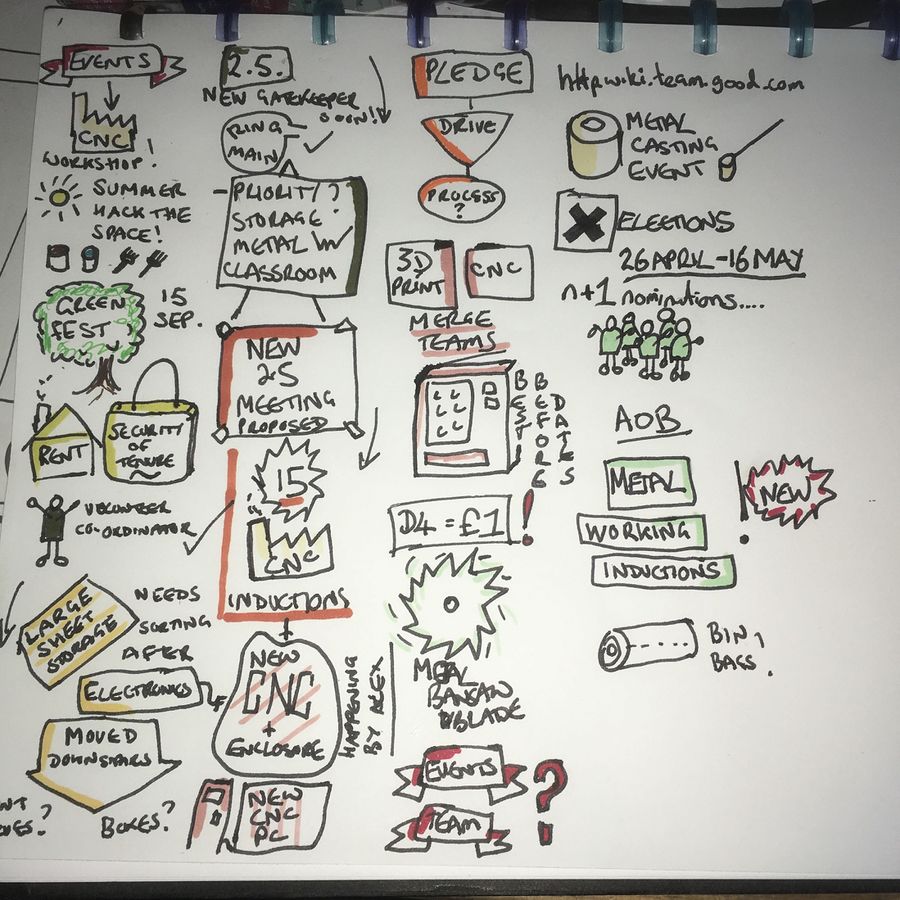 EVENTS
CNC
WORKSHOP!
SUMMER
HACK THE
SPACE!
GREEN
FEST
15
SEP.
RENT
SECURITY
OF
TENURE
VOLUNTEER
CO-ORDINATOR
LARGE
SHEET
STORAGE
NEEDS
SORTING
AFTER
ELECTRONICS
MOVED
DOWNSTAIRS
BOXES?
2.5.
NEW GATEKEEPER
SOON!
RING
MAIN
-PRIORITY?
STORAGE
METAL IN
CLASSROOM
NEW
2.5
MEETING
PROPOSED
15
CNC
INDUCTIONS
NEW
CNC
+
ENCLOSURE
HAPPENING
BY ALEX
NEW
CNC
PC
PLEDGE
DRIVE
PROCESS
?
3D
PRINT
CNC
MERGE
TEAMS
BEST BEFORE
DATES
D4 = £1!
METAL
BANSAW
BLADE
EVENTS
TEAM
?
http wiki.team.good.com
METAL
CASTING
EVENT
ELECTIONS
26 APRIL - 16 MAY
n+1 nominations....
AOB
METAL
WORKING
INDUCTIONS
! NEW
BIN
BAGS.